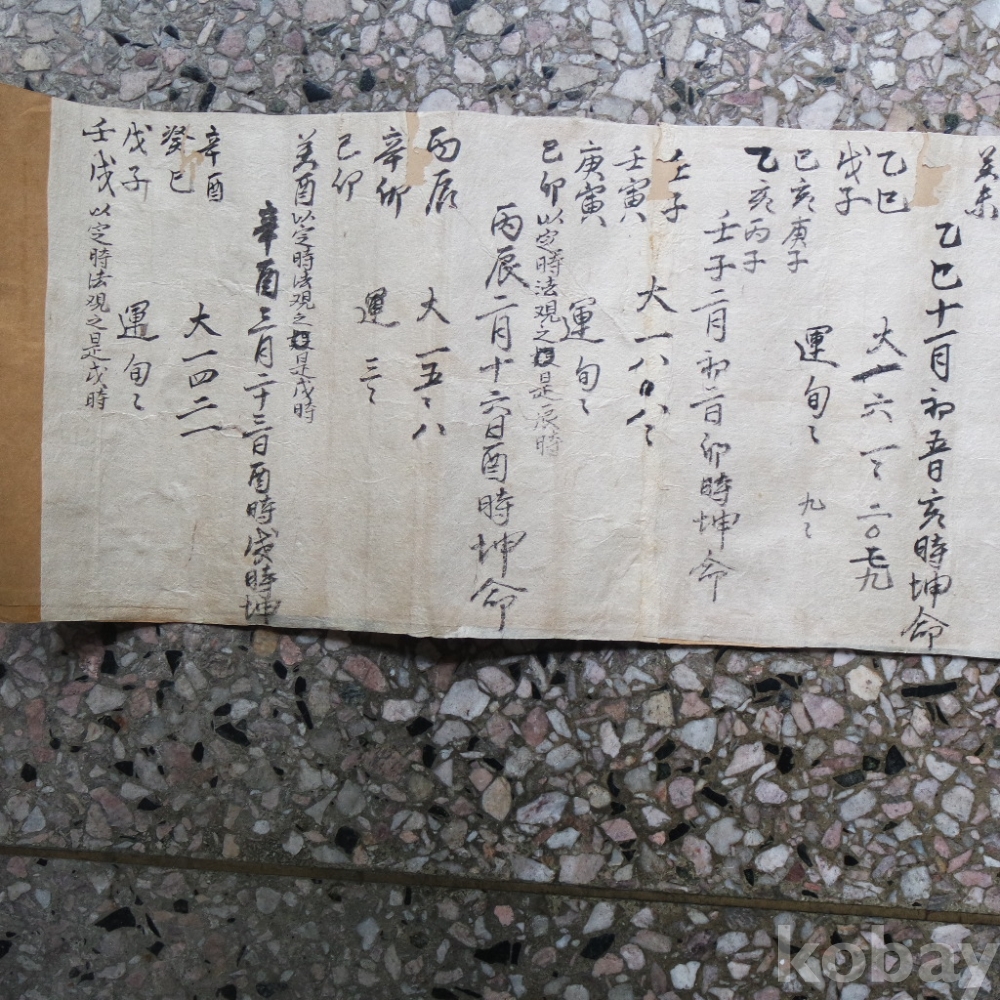 癸未
乙巳十一月初五日亥時坤命
乙巳
大十六一〻二〇
戊子
己亥庚子
運旬〻九〻
乙亥丙子
壬子二月初二日卯時坤命
壬子
大一八〇八〻
壬寅
庚寅
運旬〻
己卯以定時法观之是辰時
丙辰二月十六日酉時坤命
丙辰
大一五〻八
辛卯
運三〻
己卯
癸酉以定時法观之是戌時
辛酉三月二十三日酉時戌時坤
辛酉
大一四二一
癸巳
運旬〻
戊子
壬戌以定時法观之是戌時
kobay